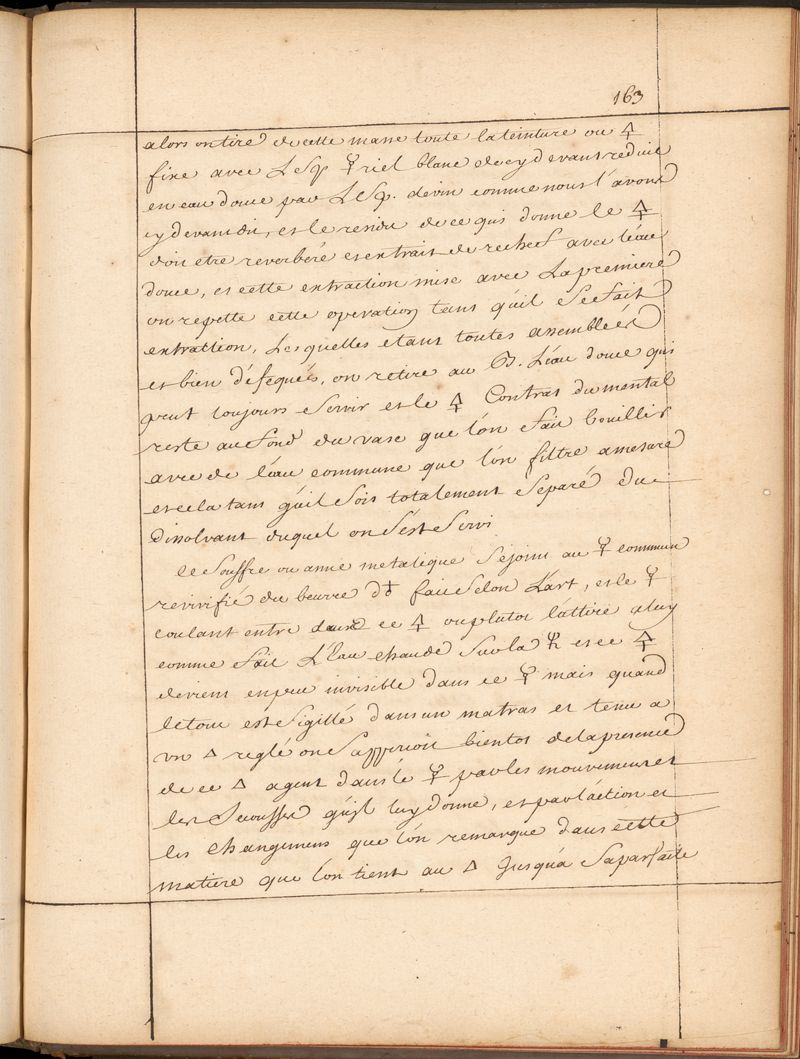 163
alors on tire de cette masse toute la teinture ou 🜍
fixe avec L'Esp ☿riel blanc de cy devant reduit
en eau douce par L'Esp. de vin comme nous l'avons
cy devant dit, et le residu de ce qui donne le 🜍
doit etre reverberé et extrait de rechef avec l'eau
douce, et cette extraction mise avec La premiere
on repette cette operation tant qu'il Se fait
extraction, Les quelles etant toutes assembleés
et bien deffequeés, on retire au B. L'eau douce qui
peut toujours Servir et le 🜍
reste au fond du vase que lon fait bouillir
avec de l'eau commune que lon filtre a mesure
et cela tant qu'il Soit totalement Separé du
dissolvant duquel on S'est Servi
ce Souffre ou ame metalique Se joint au ☿ commun
revivifié du beurre d♁ fait Selon L'art, et le ☿
coulant entre dans ce 🜍 ou plutot l'attire a luy
comme fait L'Eau chaude Sur la et ce 🜍
devient en peu invisible dans ce ☿ mais quand
le tout est Sigillé dans un matras et tenu a
un 🜂 reglé on S'apperçoit bientot de la presence
de ce 🜂 agent dans le ☿ par les mouvemens et
les Secousses qu'il luy donne, et par l'action et
les changemens que lon remarque dans cette
matiere que lon tient au 🜂 jusqu'a Sa parfaite